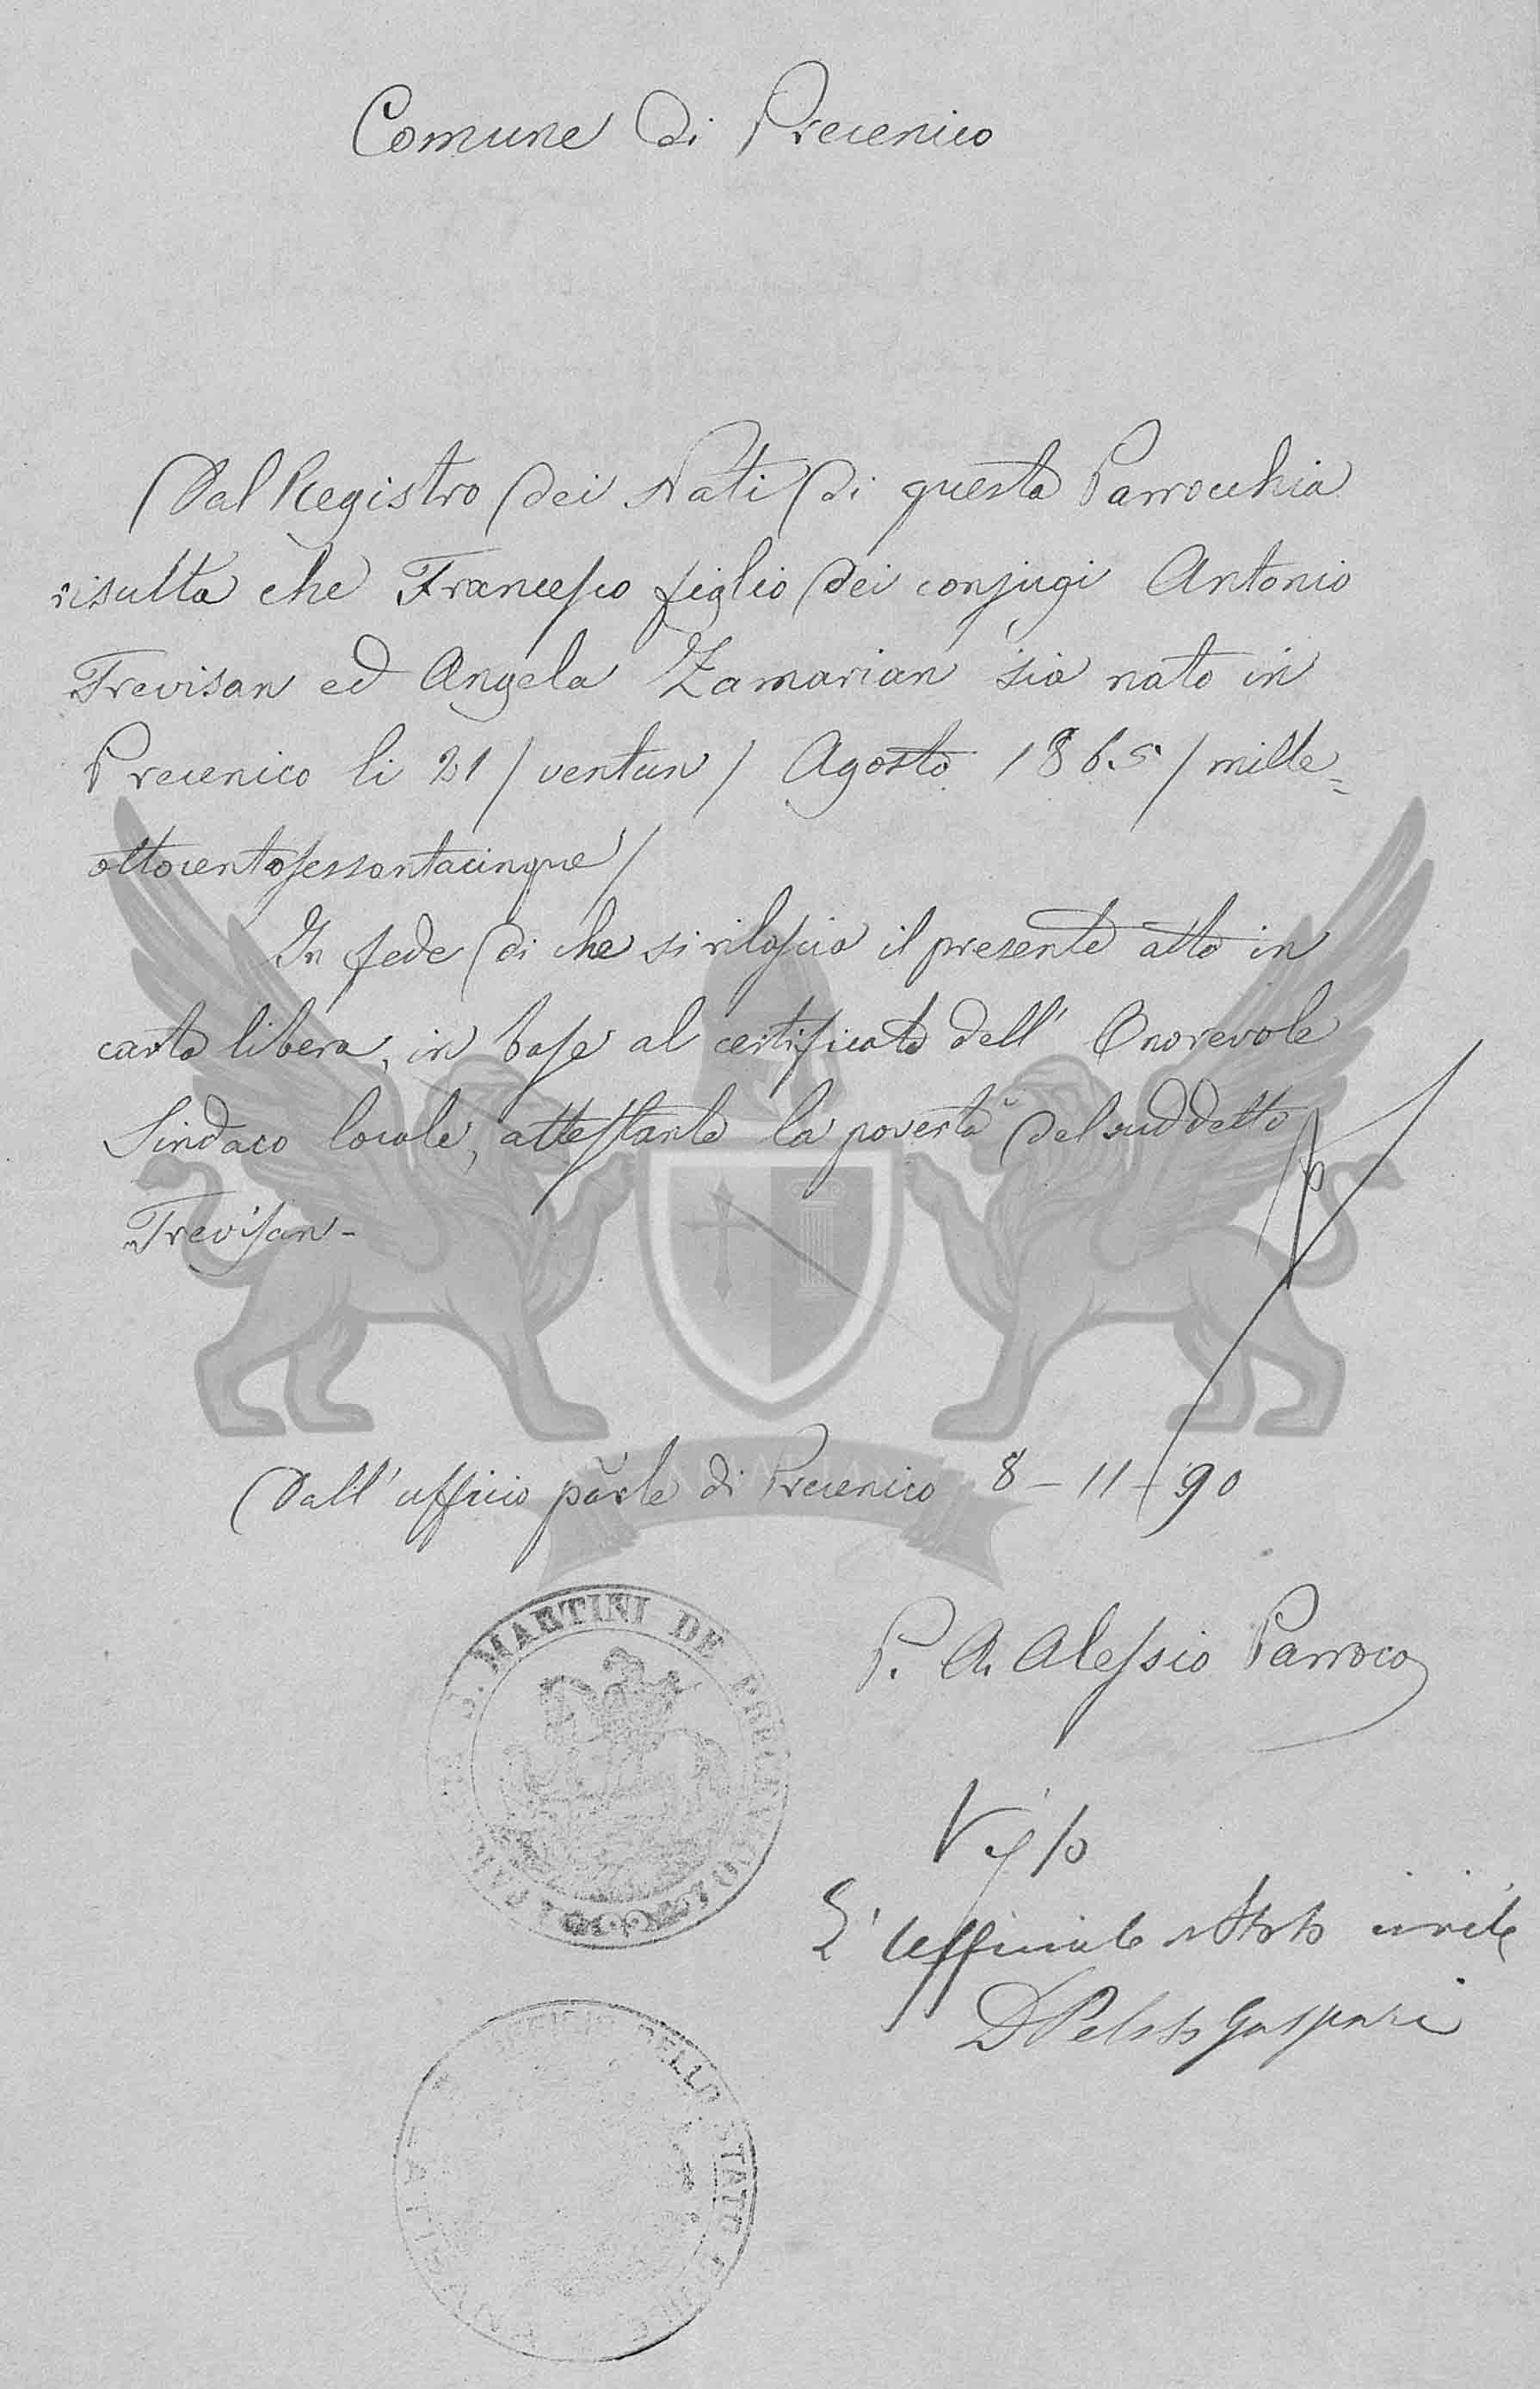 Comune di Precenico
Dal Registro dei Nati di questa Parrocchia
risulta che Francesco figlio dei conjugi Antonio
Trevisan ed Angela Zamarian sia nato in
Precenico li 21 / ventun / Agosto 1865 / mille=
ottocentosessantacinque /
In fede di che si rilascia il presente atto in
carta libera, in base al certificato dell' Onorevole
Sindaco locale, attestante la povertà del suddetto
Trevisan-
Dall' ufficio parle di Precenico 8-11-90
S. MARTINI DE PRECENICO
P. A. Alessio Parroco
Visto
L' Ufficiale Stato civile
Gaspari
UFFICIO DELLO STATO